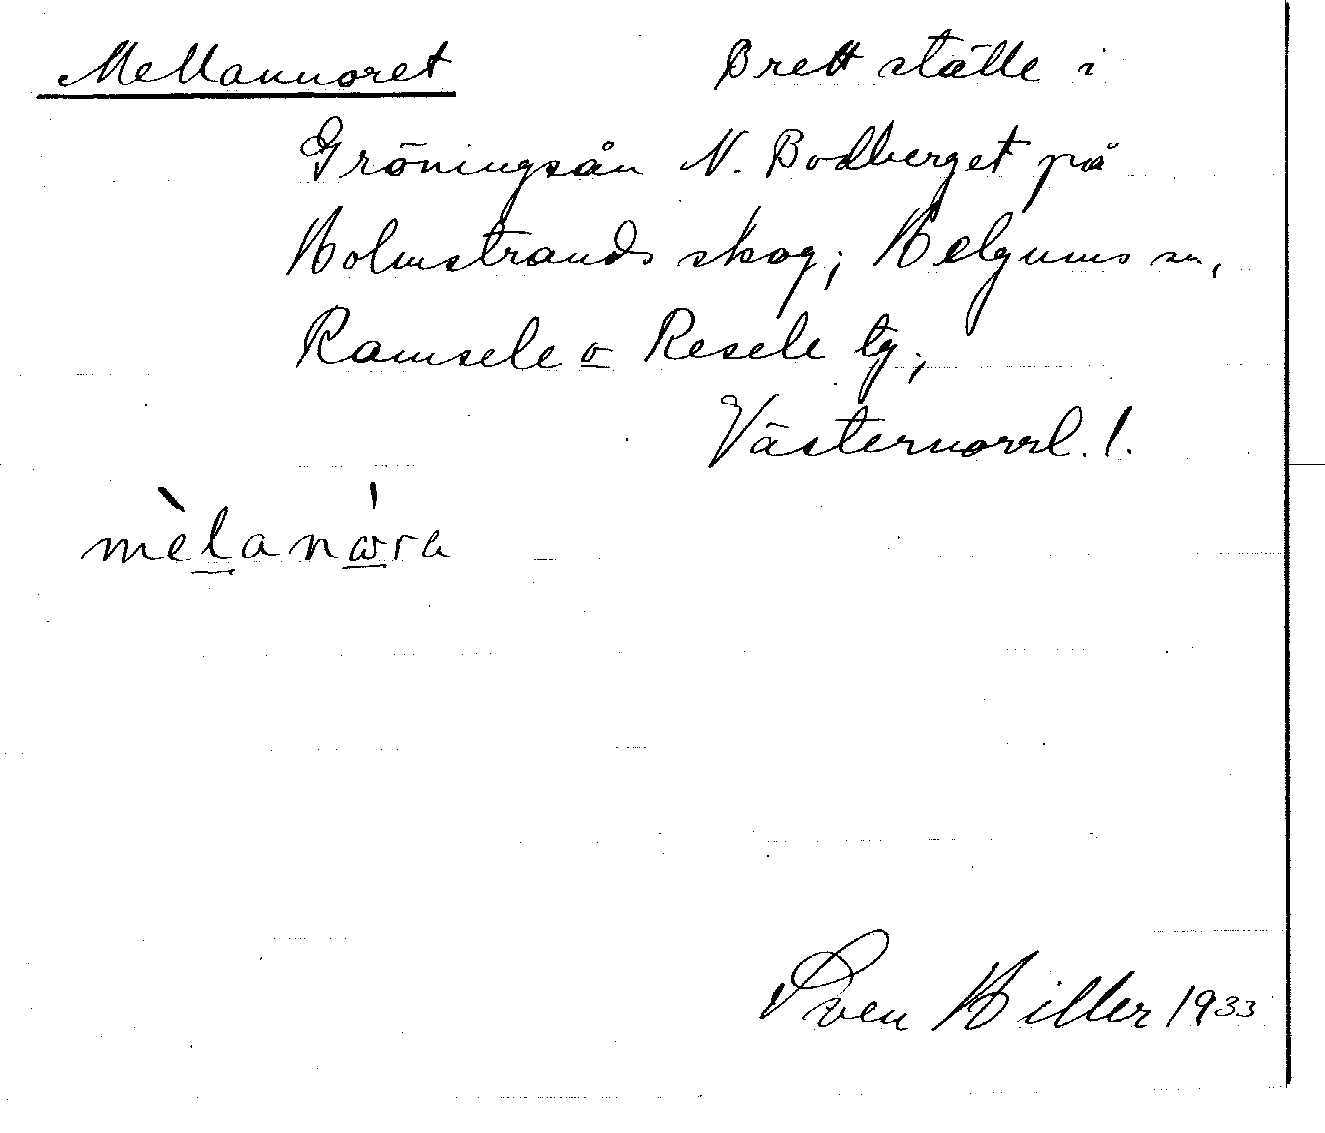 Mellannoret Brett ställe i
Gröningsån N. Bodberget på
Holmstrands skog; Helgums sn,
Ramsele o Resele tg,
Västernorrl. l.
mèlanåra
Sven Hiller 1933